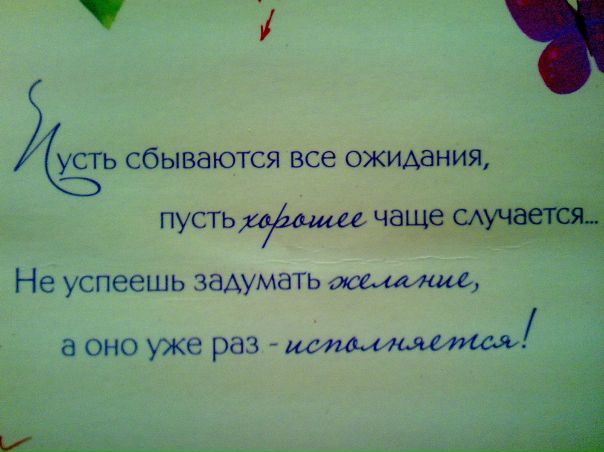 Пусть сбываются все ожидания,
пусть хорошее чаще случается...
Не успеешь задумать желание,
а оно уже раз - исполняется!